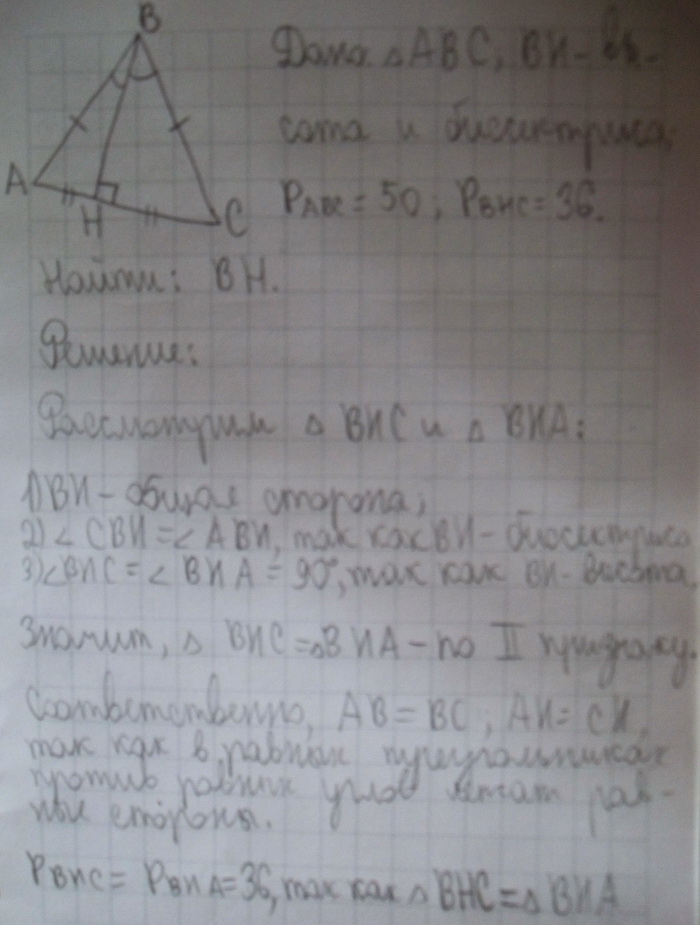 B
A
H
C
Дано: △ABC, BH - вы-
сота и биссектриса;
PABC = 50; PBHC = 36.
Найти: BH.
Решение:
Рассмотрим △ BHC и △ BHA:
1) BH - общая сторона;
2) ∠ CBH = ∠ ABH, так как BH - биссектриса
3) ∠BHC = ∠ BHA = 90°, так как BH - высота.
Значит, △ BHC = △BHA - по II признаку.
Соответственно, AB = BC; AH = CH,
так как в равных треугольниках
против равных углов лежат рав-
ные стороны.
PBHC = PBHA = 36, так как △ BHC = △ BHA